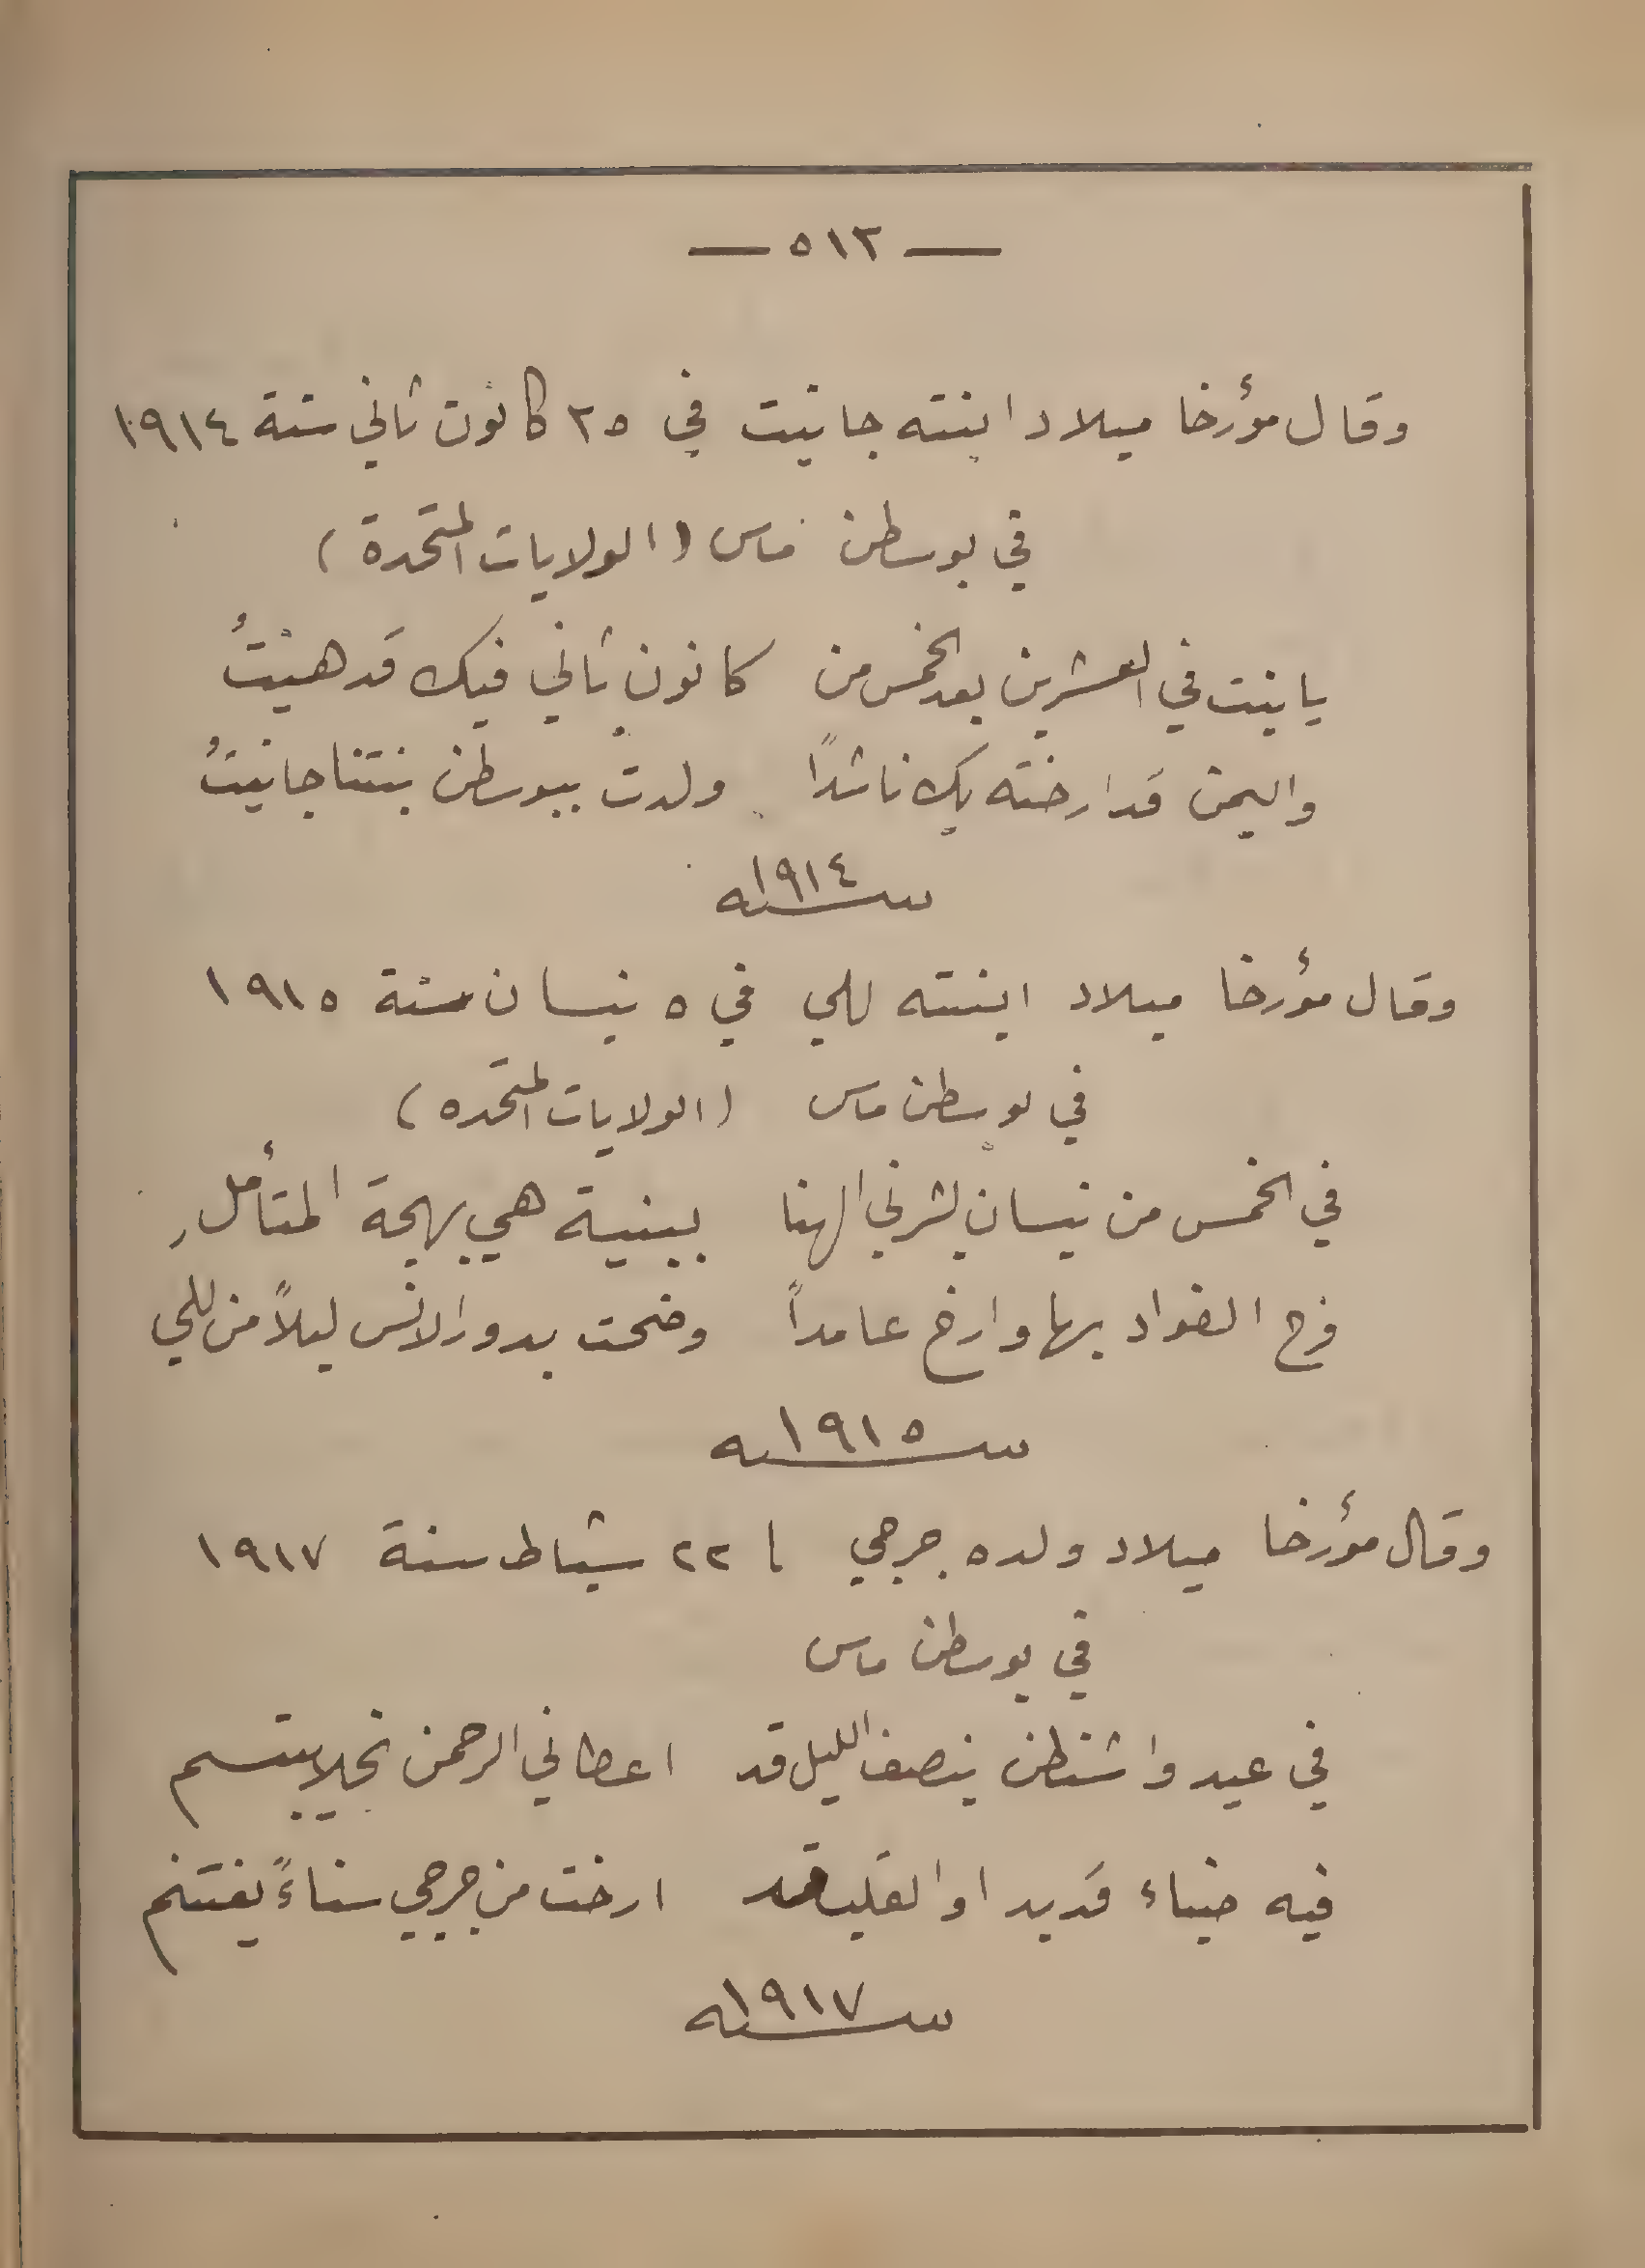 — ٥١٢ —
وقال مؤرخا ميلاد ابنته جانيت في ٢٥ كانون ثاني سنة ١٩١٤
في بوسطن ماس (الولايات المتحدة)
يا بنت في العشرين بعد الخمس من كانون ثاني فيك قد هنيتُ
واليمن قد ارخته بك ناشداً ولدت ببوسطن بنتنا جانيتُ
سنه ١٩١٤
وقال مؤرخا ميلاد ابنته للي في ٥ نيسان سنة ١٩١٥
في بوسطن ماس (الولايات المتحده)
في الخمس من نيسان بشرني الهنا ببنية هي بهجة المتأملِ
فرح الفواد بها وارخ عامداً وضحت بدور الانس ليلاً من للي
سنه ١٩١٥
وقال مؤرخا ميلاد ولده جرجي في ٢٢ شباط سنة ١٩١٧
في بوسطن ماس
في عيد واشنطن بنصف الليل قد اعطاني الرحمن نجلا يبتسم
فيه ضياء قد بدا والقلب قد ارخت من جرجي سناءً يغتنم
سنه ١٩١٧